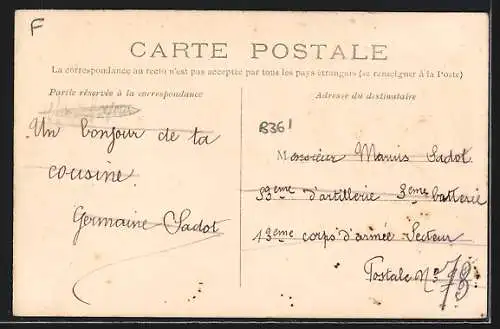 F
CARTE POSTALE
La correspondance au recto n'est pas acceptée par tous les pays étrangers (se renseigner à la Poste)
Partie réservée à la correspondance
Adresse du destinataire
B361
Un bonjour de ta
cousine.
Germaine Sadot
Monsieur Sadot
d'artillerie 3eme batterie
corps d'armée Secteur
Postale No 78